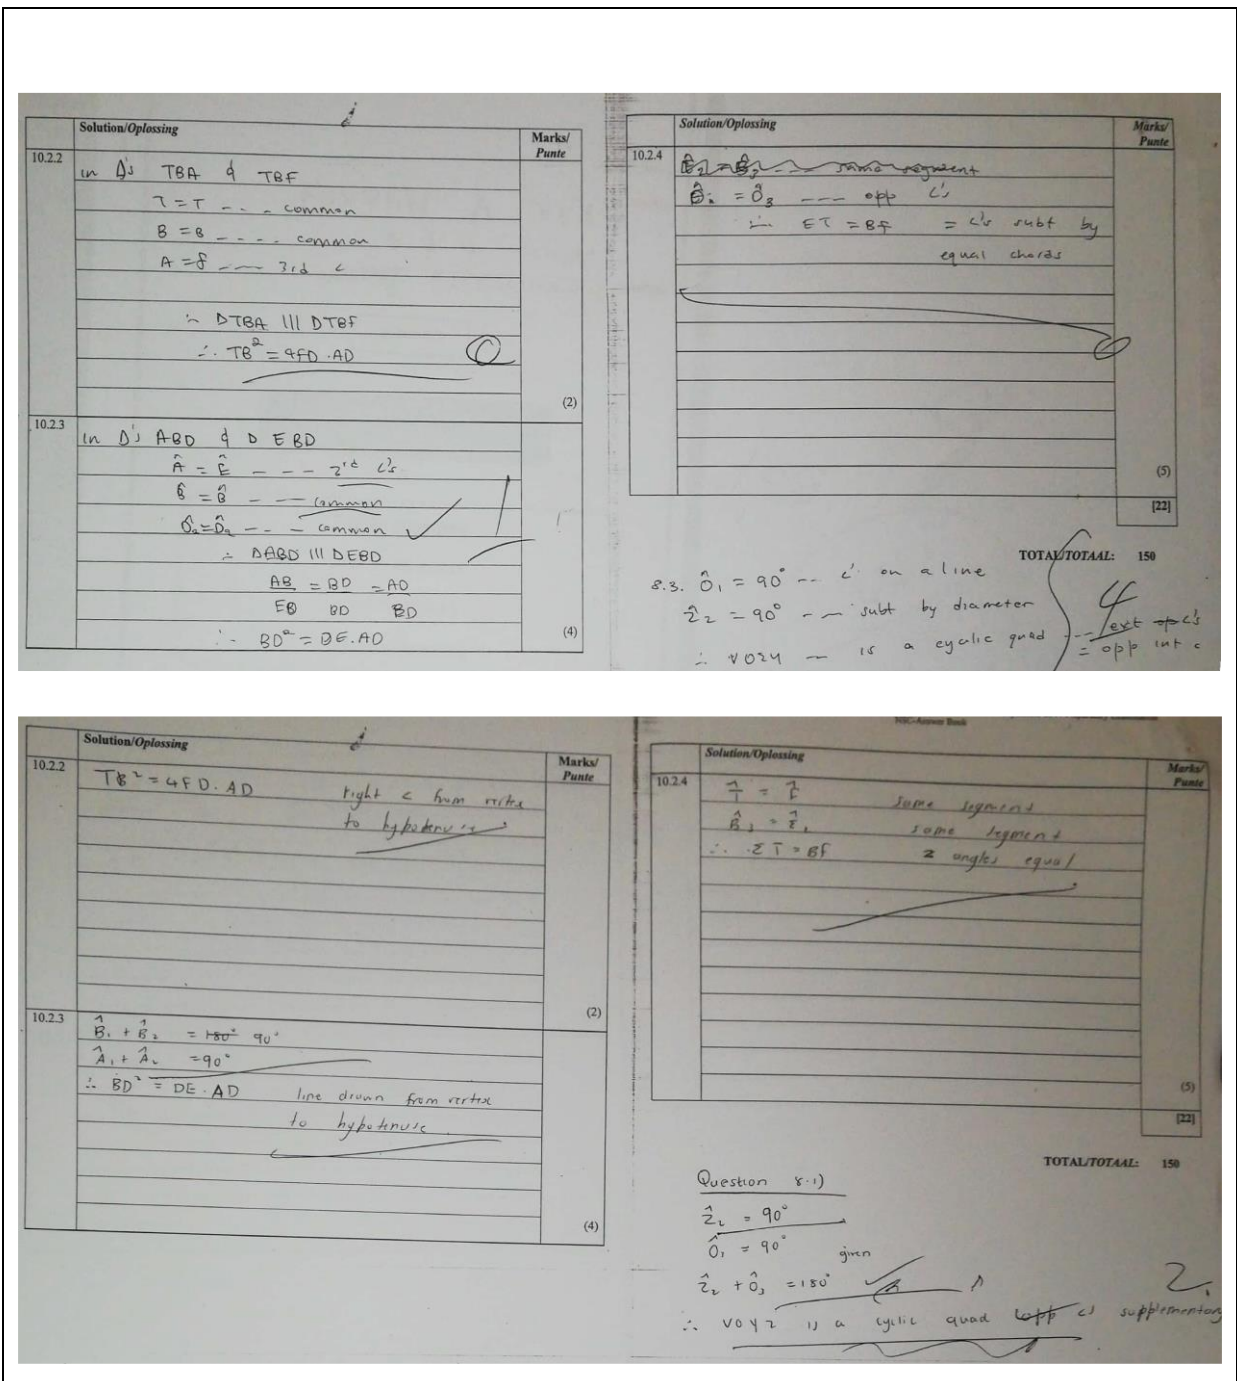 Solution/Oplossing
Marks/
Punte
10.2.2
in Δ's TBA & TBF
T = T - - - common
B = B - - - - common
A = f - - - 3rd <
∴ DTBA ||| DTBF
∴ TB² = 4FD .AD
(2)
10.2.3
in Δ's ABD & D EBD
Â = Ê - - - - 2rd <'s
B̂ = B̂ - - - common
D̂₂=D̂₂ - - - common ✓
∴ DABD ||| DEBD
AB = BD = AD
EB BD BD
∴ BD² = DE.AD
(4)
Solution/Oplossing
Marks/
Punte
10.2.4
same segment
= Ô₃ - - - opp <'s
∴ ET = BF = <'s subt by
equal chords
(5)
[22]
TOTAL/TOTAAL: 150
8.3. Ô₁ = 90° - - <' on a line
Ẑ₂ = 90° - - subt by diameter
∴ VOZY - is a cyclic quad - - - ext op <'s
= opp int <
4
Solution/Oplossing
Marks/
Punte
10.2.2
TB² = 4FD.AD right < from vertex
to hypotenuse
(2)
10.2.3
B̂₁ + B̂₂ = 180° 90°
Â₁ + Â₂ =90°
∴ BD² = DE.AD line drawn from vertex
to hypotenuse
(4)
NSC-Answer Book
Solution/Oplossing
Marks/
Punte
10.2.4
T̂ = F̂ same segment
B̂₃ = Ê₁ same segment
∴ ET = BF 2 angles equal
(5)
[22]
TOTAL/TOTAAL: 150
Question 8.1)
Ẑ₂ = 90°
Ô₁ = 90° given
Ẑ₂ + Ô₃ = 180° ✓
2
∴ VOYZ is a cyclic quad opp <s supplementary